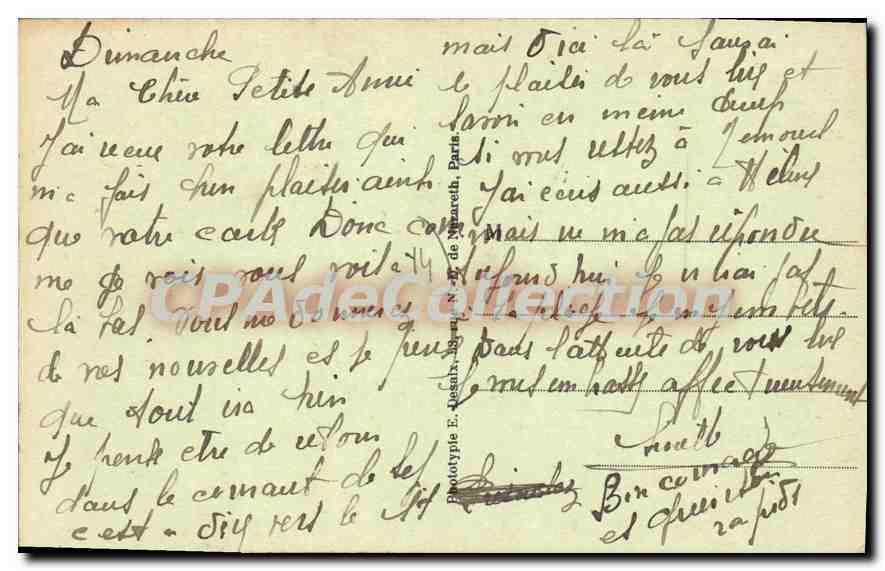 Dimanche
Ma Chère Petite Amie
J'ai reçue votre lettre qui
m a fais bien plaisir ainsi
que votre carte Donc com
me je vois vous voila
là bas vous me donnerez
de vos nouvelles et je pense
que tout ira bien
Je pense etre de retour
dans le courant de Sep
c est a dire vers le 15
mais d ici là j'aurai
le plaisir de vous lire et
savoir en meme temps
si vous restez à
J'ai écris aussi a Hélène
mais ne m a pas répondu
aujourd hui je n irai pas
a la plage
Dans l'attente de vous lire
Je vous embrasse affectueusement
Bon courage
et guérison
rapide
M
Phototypie E. Desaix, rue N.-D. de Nazareth, Paris.
CPAdeCollection